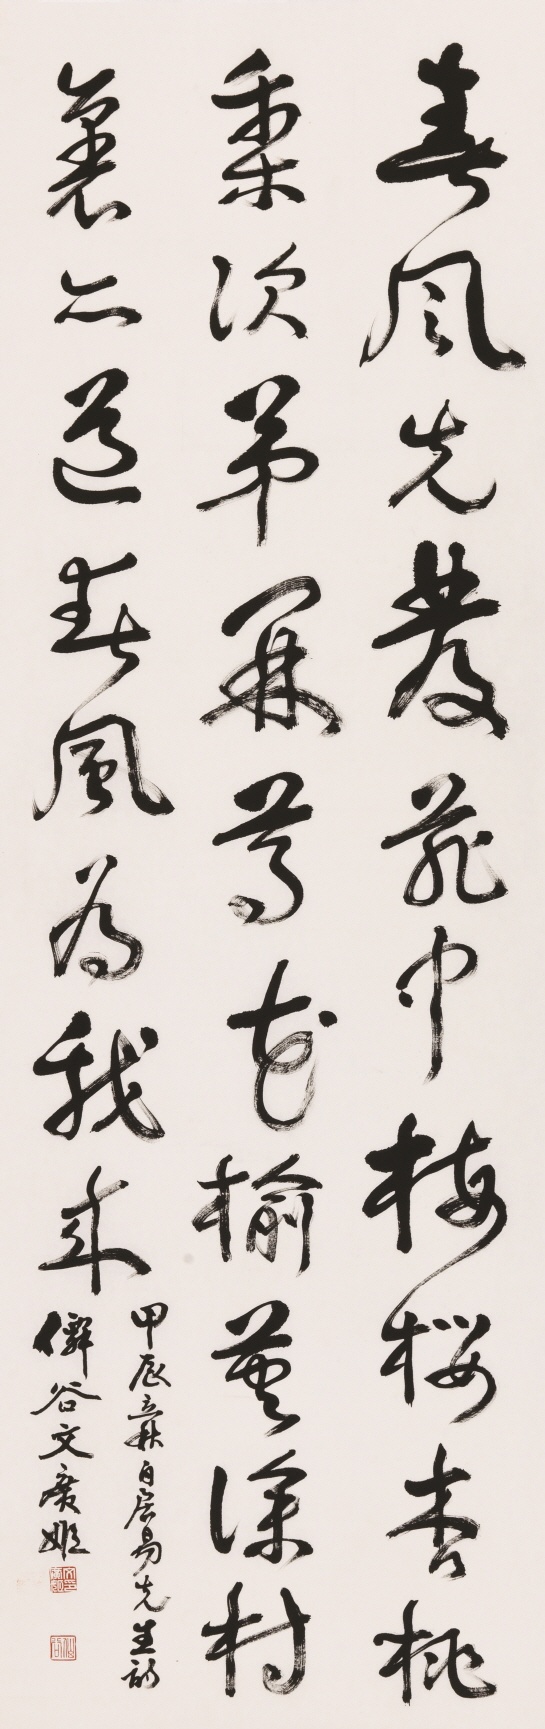 春風先發苑中梅櫻杏桃
梨次第開薺花榆莢深村
裏亦道春風為我來
甲辰立秋白居易先生詩
谷文姬